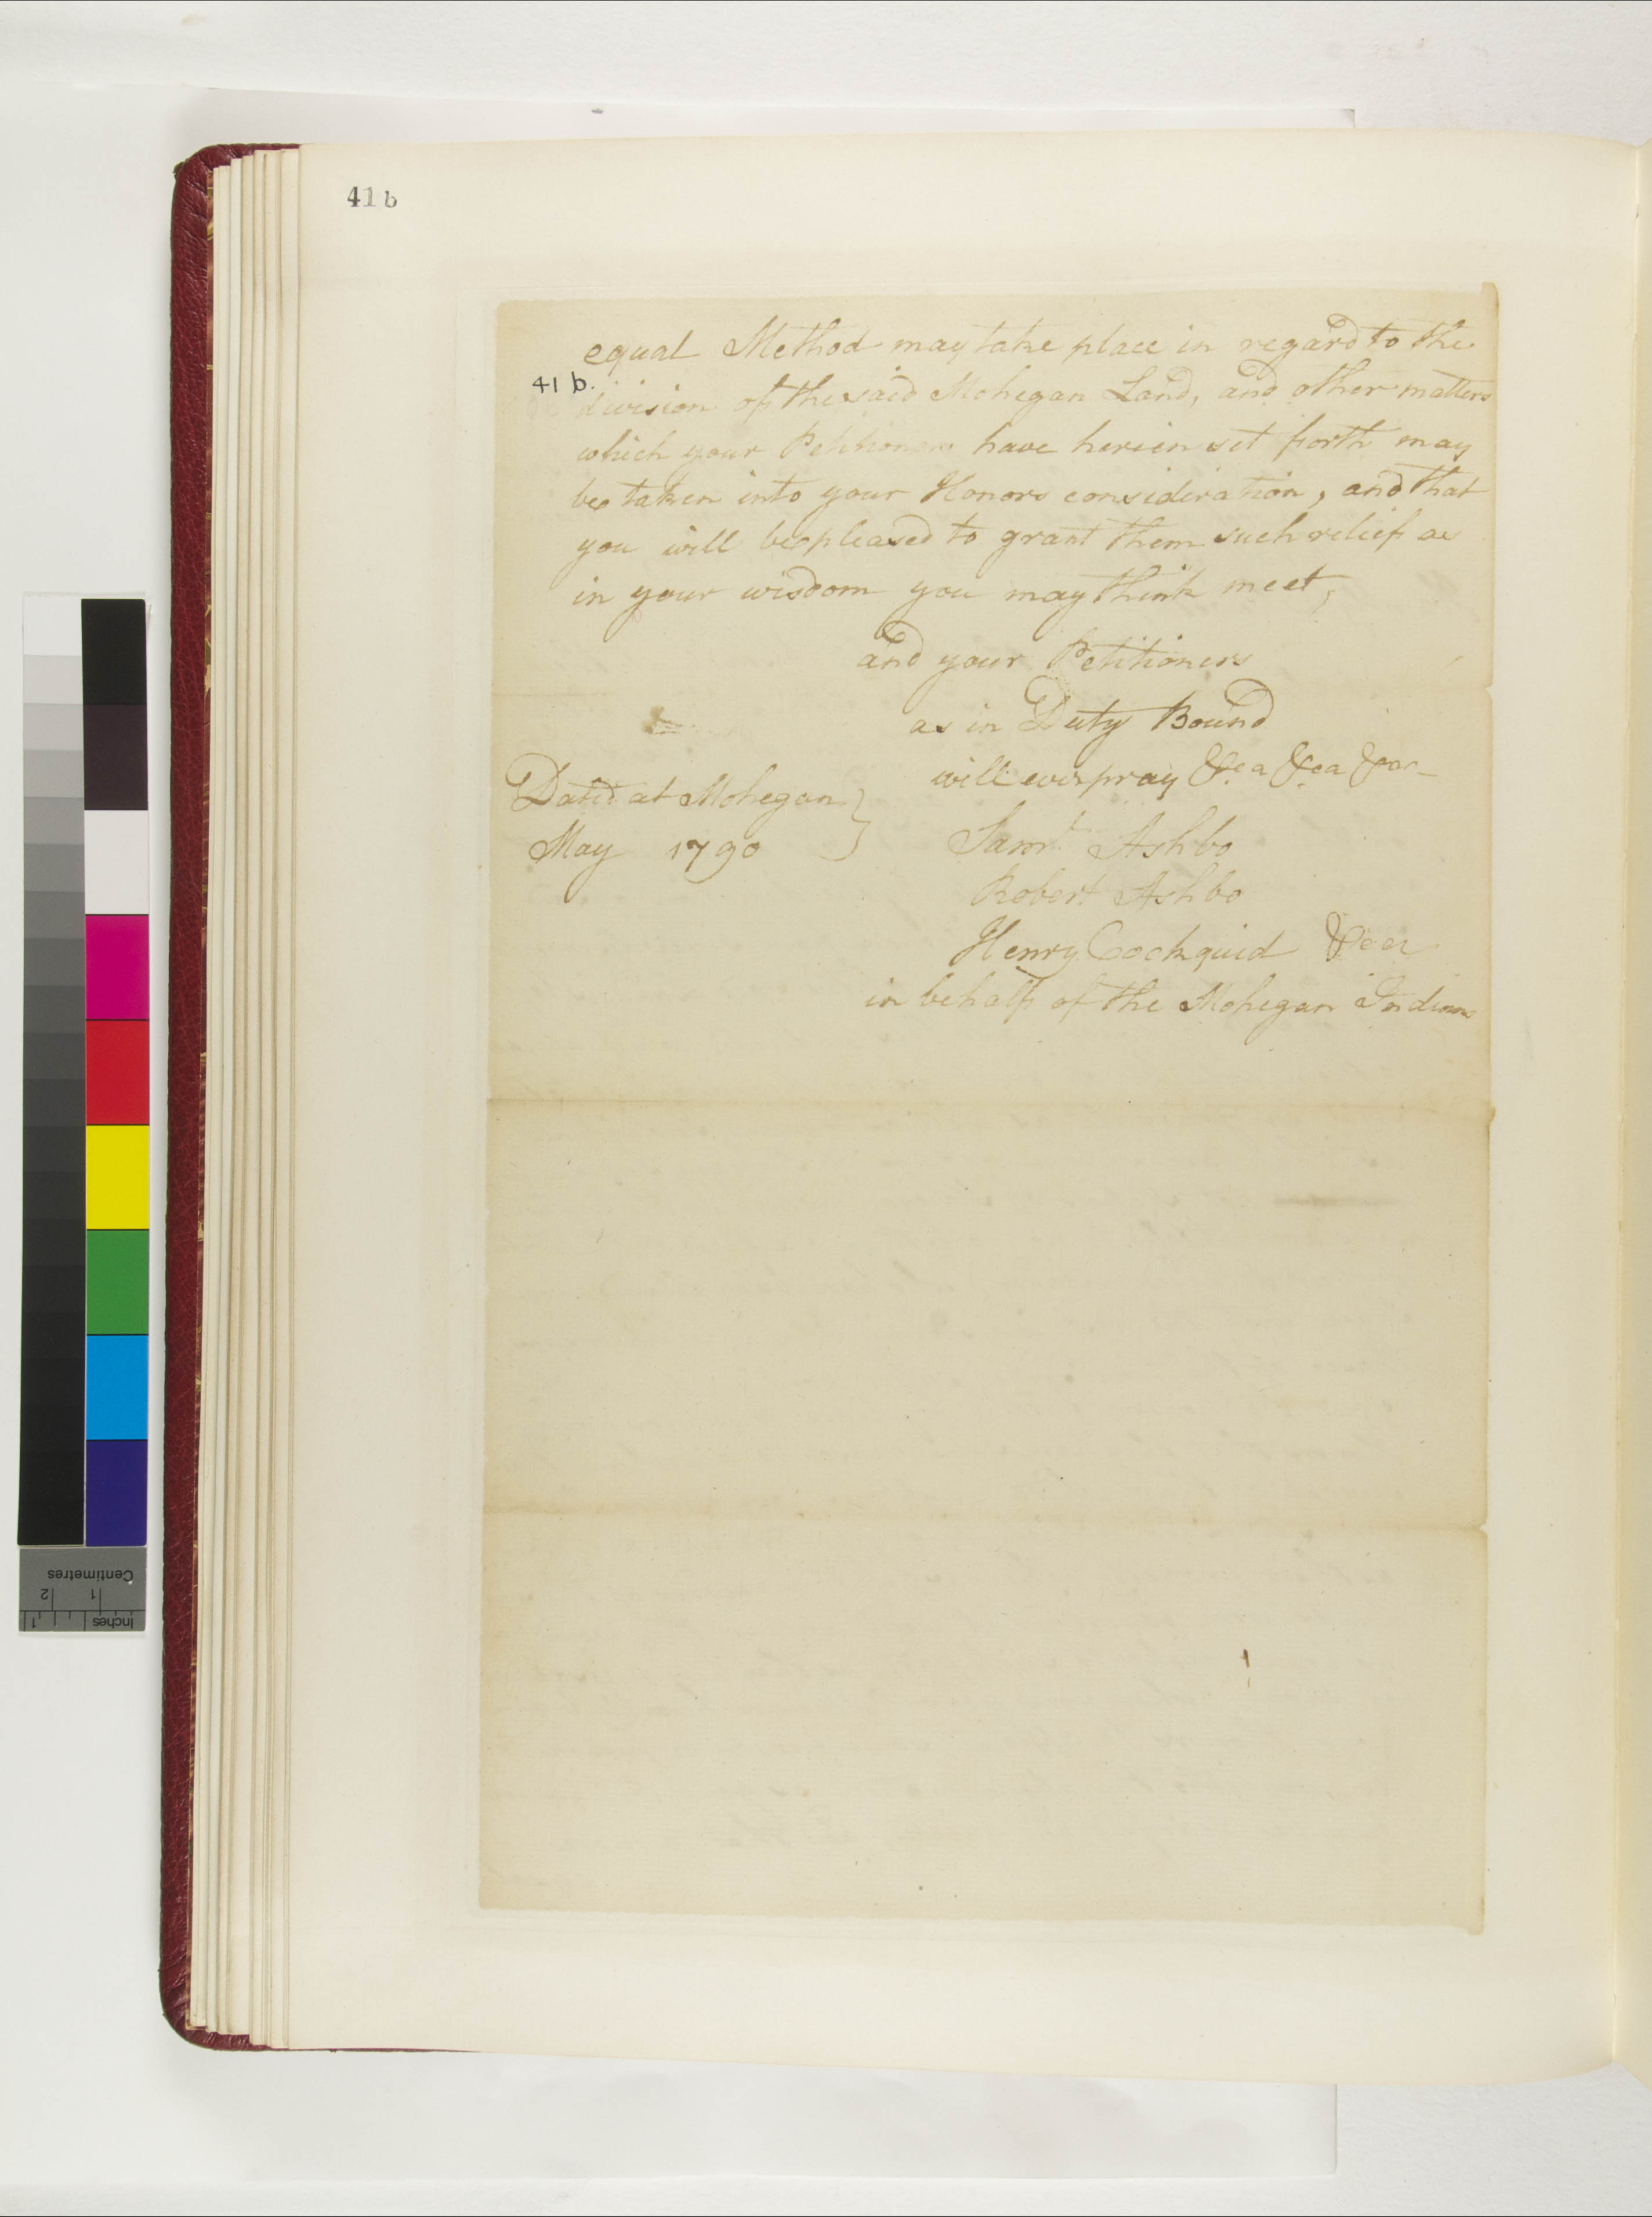 41 b
equal Method may take place in regard to the
41 b.
division of the said Mohegan Land, and other matters
which your Petitioners have herein set forth may
be taken into your Honors consideration, and that
you will be pleased to grant them such relief as
in your wisdom you may think meet,
and your Petitioners
as in Duty Bound
will ever pray &ca &ca &ca
Dated at Mohegan
May 1790
Saml Ashbo
Robert Ashbo
Henry Cockquid &ca
in behalf of the Mohegan Indians
Centimetres
1 2
Inches
1